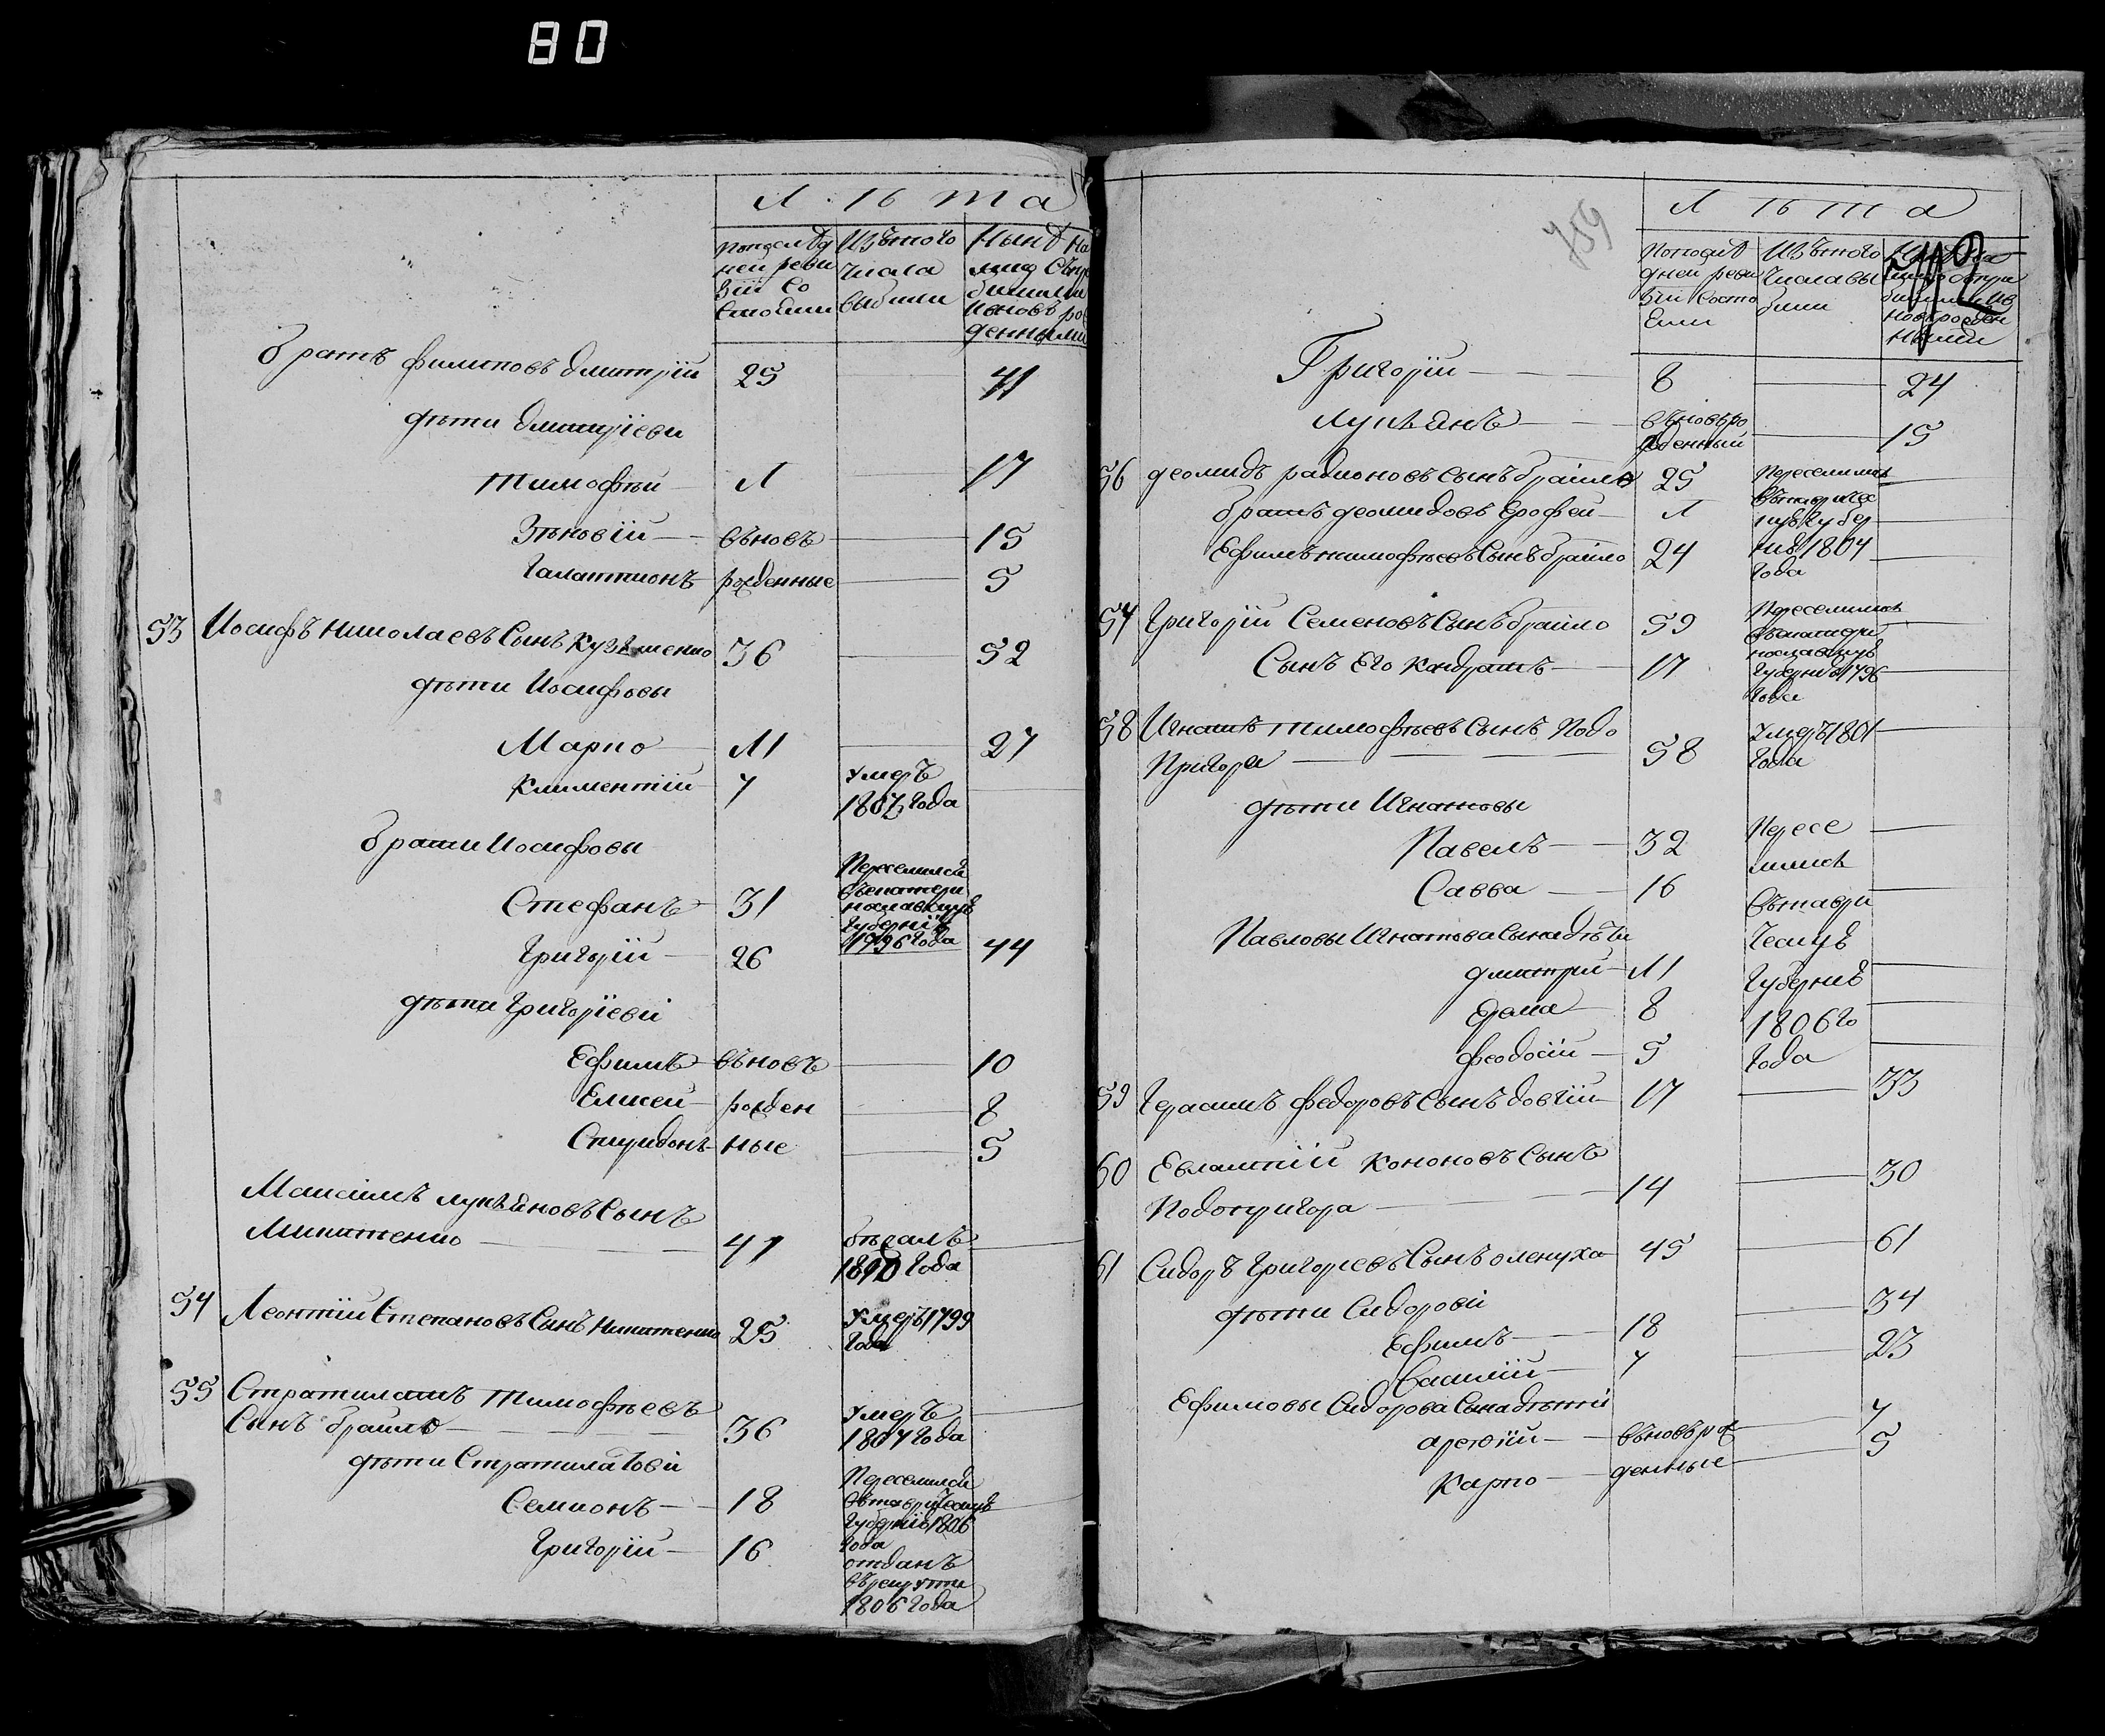 80
Лѣта
Попослѣд
ней реви
зіи со
стояли
Изътого
числа
выбыли
Нынѣ на
лицо съпри
былыми
иновъ ро
денными
братъ филиповъ дмитрій 25 41
дѣти дмитріеви
тимофѣй 1 17
Зѣновій вьновь 15
Галактионъ рожденные 5
53 Иосифъ николаевъ Сынъ кузьменко 36 52
дѣти Иосифовы
Марко 11 27
климентій 7 умеръ
1807 Года
братя Иосифовы
Стефанъ 31 Переселился
въекатери
нославскую
Губернію
1796 Года
Григорій 26 44
дѣти Григоріеви
Ефимъ вьновь 10
Елисей рожден 8
Спиридонъ ные 5
Максимъ лукьяновъ Сынъ
Микитенко 41 бѣжалъ
1810 Года
54 Леонтій Степановъ Сынъ Никитенко 25 умеръ 1799
Года
55 Стратилатъ тимофѣевъ
Сынъ браило 36 умеръ
1807 Года
дѣти Стратилатови
Семионъ 18 Переселился
вътаврическую
Губернію 1806
Года
Григорій 16 отданъ
върекруты
1806 Года
759
Лѣта
Попослѣ
дней реви
зіи состо
яли
Изътого
числа вы
были
Григорій 8 24
лукьянъ вьновьро
жденный 15
56 деомидъ радионовъ сынъ браило 25 Переселились
вътавричес
кую Губер
нію 1804
Года
братъ деомидовъ Ерофей 1
Ефимъ тимофѣевъ Сынъ браило 24
57 Григорій Семеновъ Сынъ браило 59 Переселились
въекатери
нославскую
Губернію 1796
Года
Сынъ Его кондратъ 17
58 Игнатъ тимофѣевъ Сынъ Подо
Пригора 58 умеръ 1801
Года
дѣти Игнатовы
Павелъ 32 Пересе
лились
Савва 16 вътаври
Павловы Игнатова Сына дѣти ческую
дмитрій 11 Губернію
Ерема 8 1806 го
феодосій 5 Года
59 Герасимъ федоровъ Сынъ довгій 17 33
60 Евлампій кононовъ Сынъ
Подопригора 14 30
61 Сидоръ Григоріевъ Сынъ оленуха 45 61
дѣти Сидорови
Ефимъ 18 34
Василій 7 23
Ефимовы Сидорова Сына дѣти
арефій вьновьрож 7
карпо денные 5